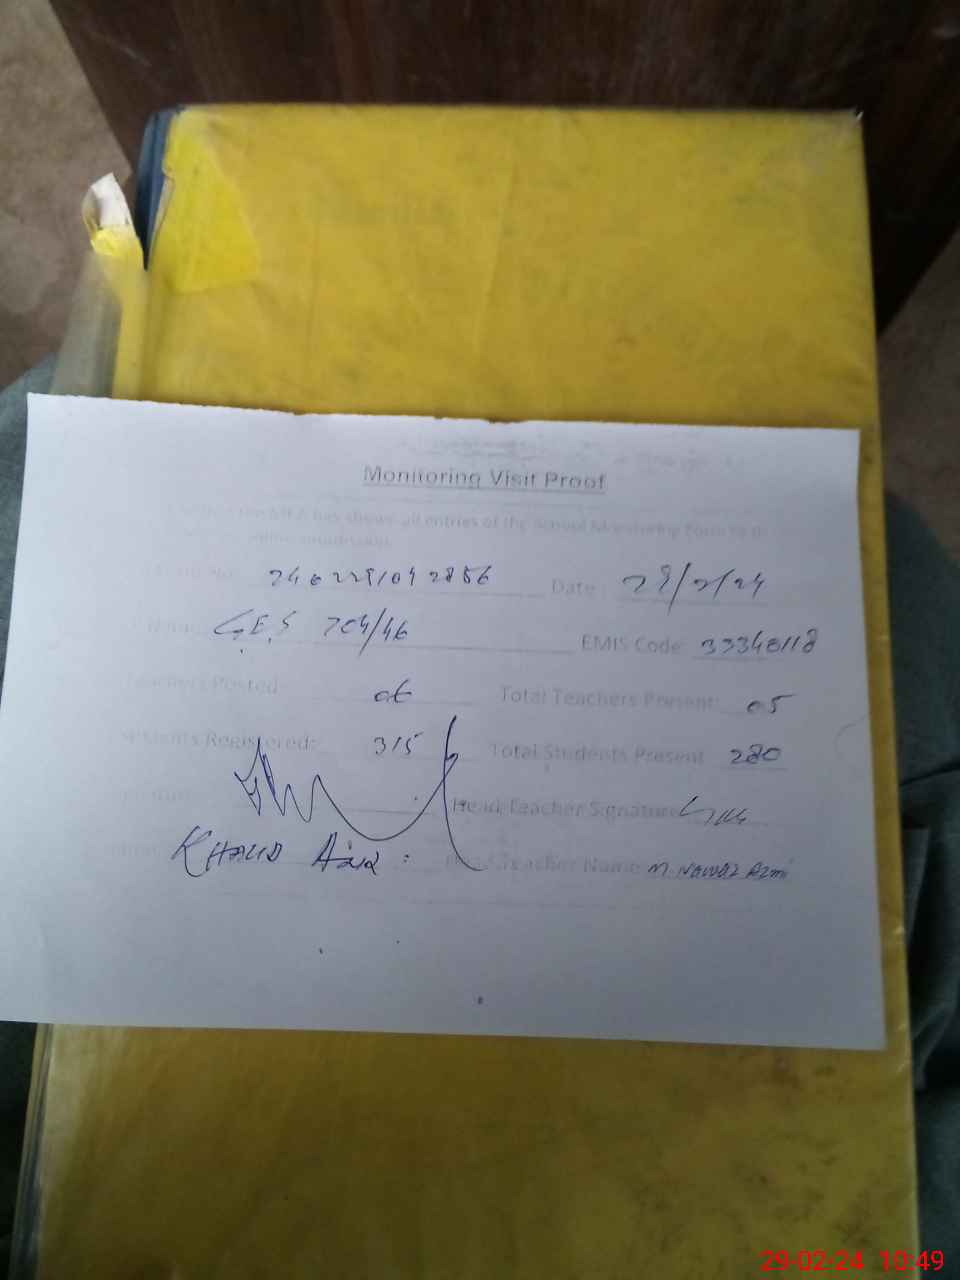 Monitoring Visit Proof
has shown all entries of the School Monitoring Form to th
2402291042856 Date : 29/2/24
G.E.S 704/46 EMIS Code: 33340118
Teachers Posted: 06 Total Teachers Present: 05
students Registered: 315 Total Students Present 280
Head Teacher Signature
KHALID Aziz : Teacher Name M. Nawaz Azmi
29-02-24 10:49